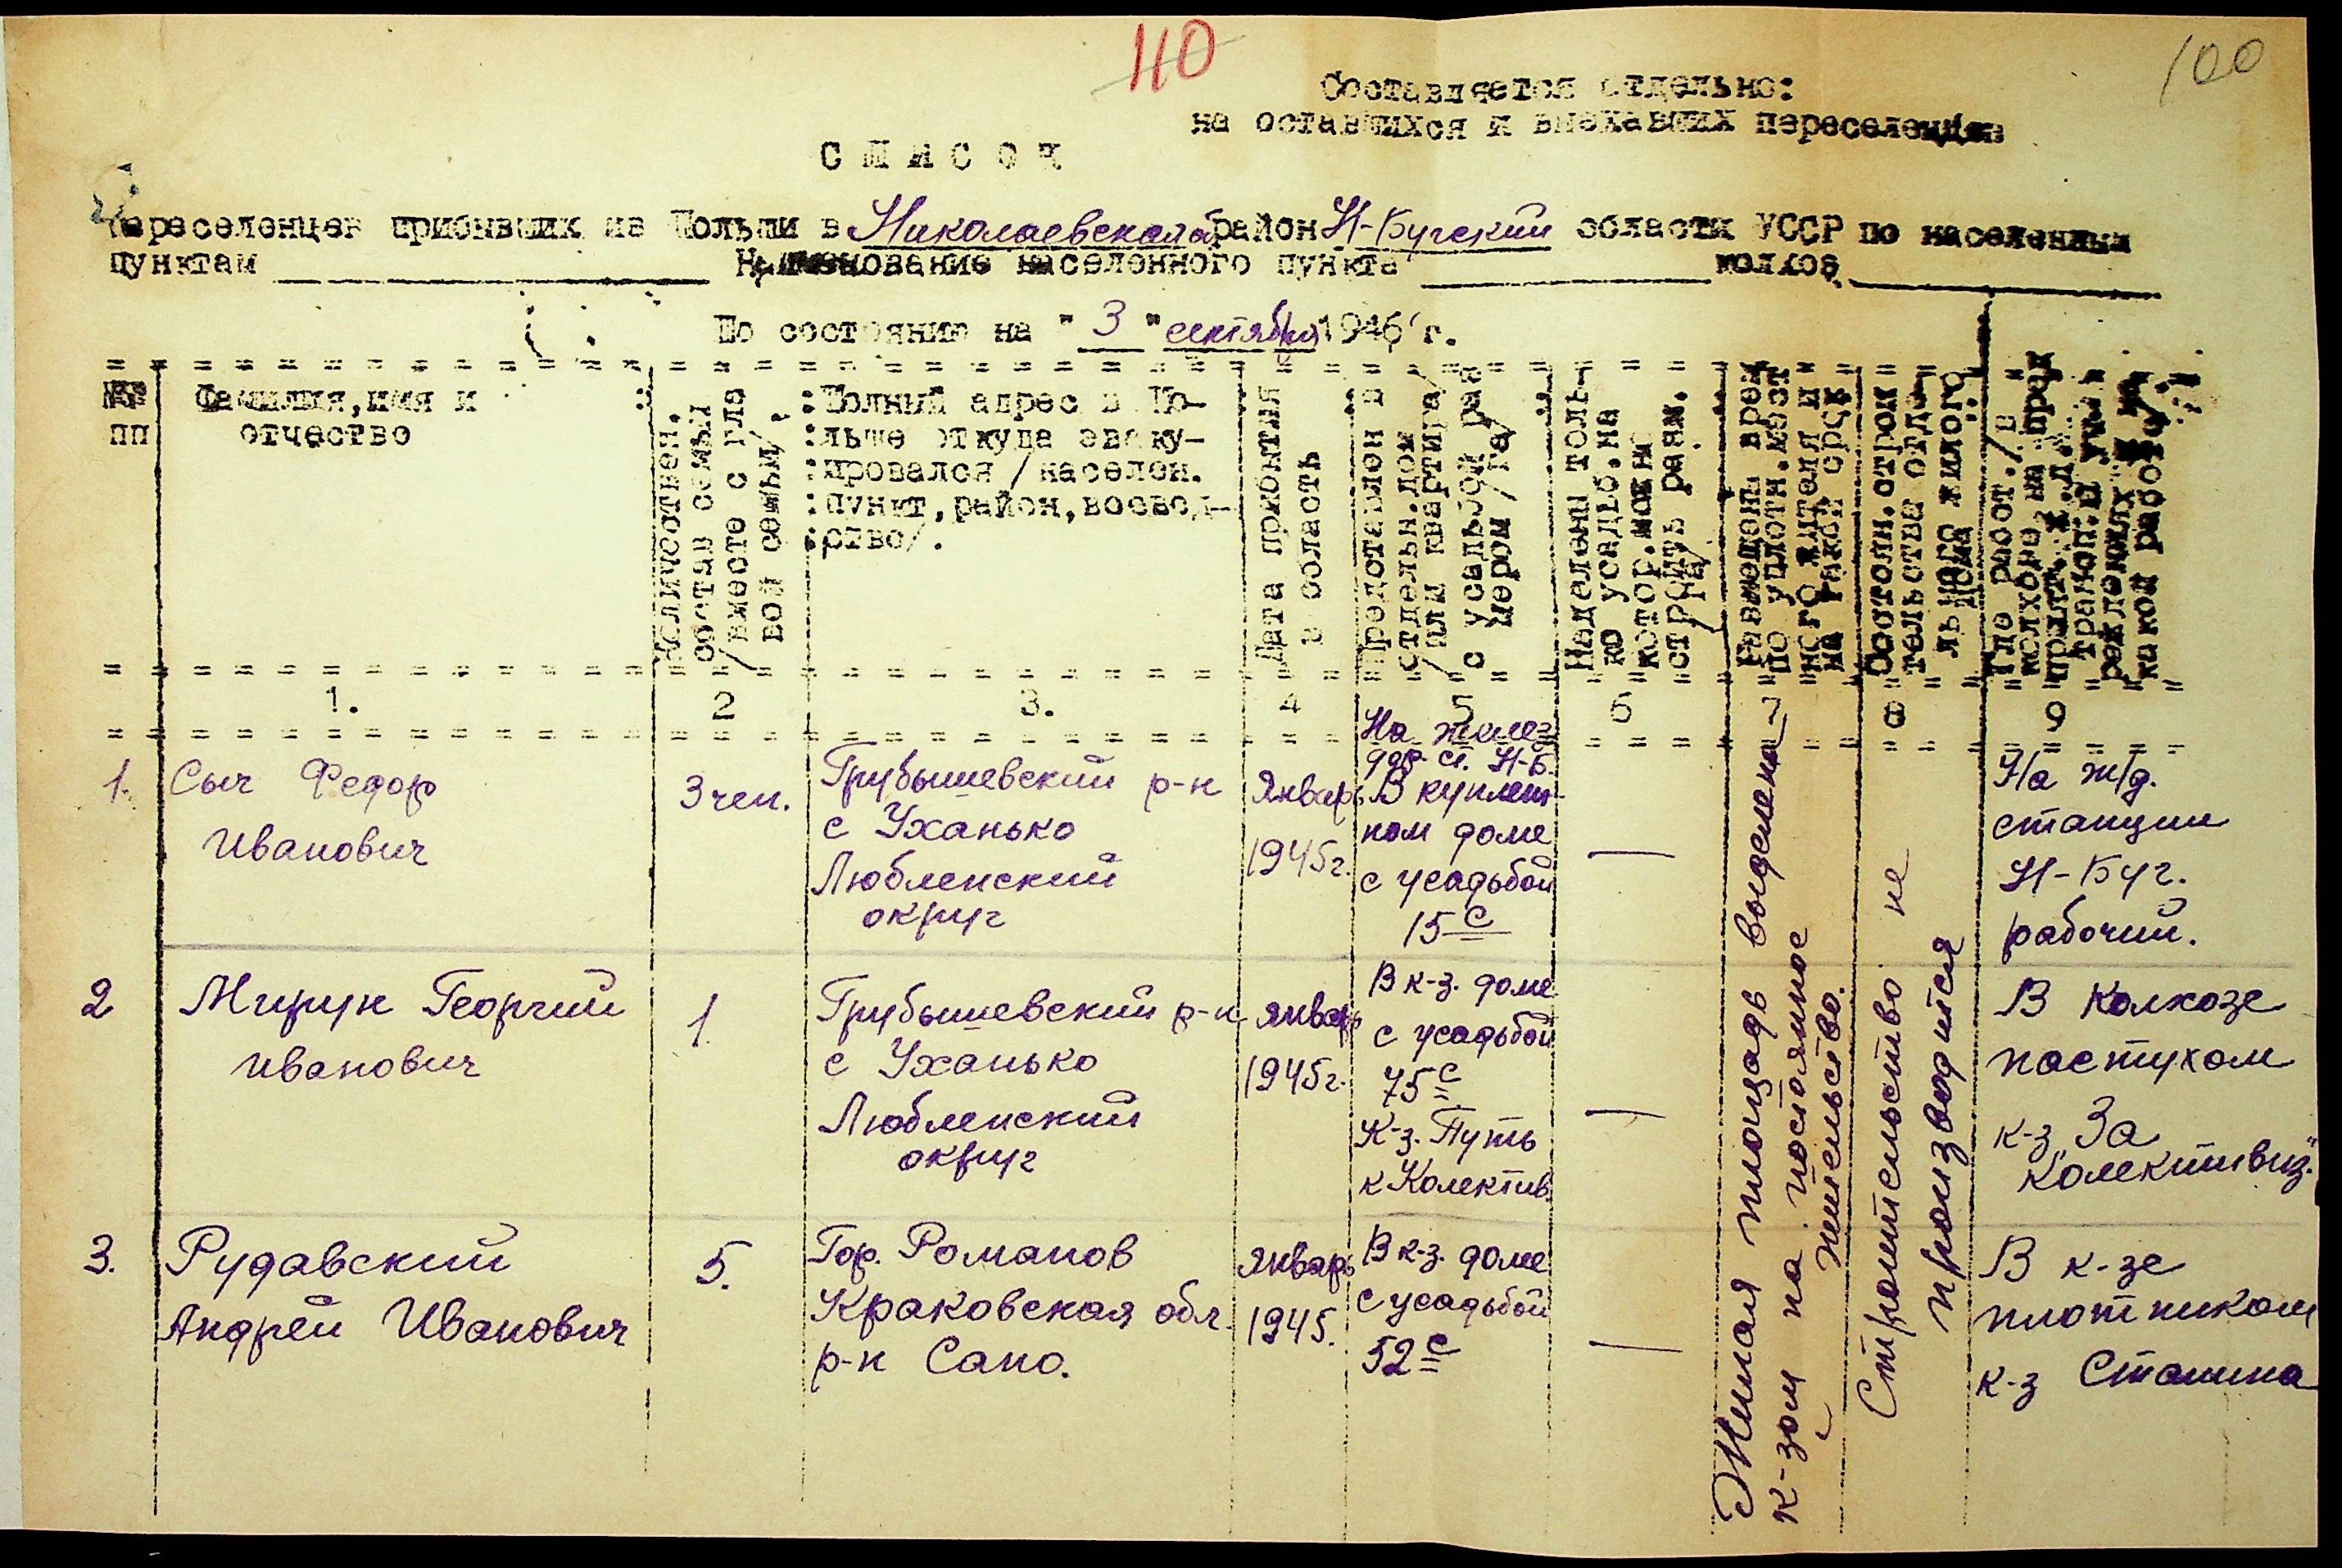 110
100
Составляется отдельно:
на оставшихся и выехавших переселенцев
СПИСОК
переселенцев прибывших из Польши в Николаевская район Н-Бугский области УССР по населенным
пунктам Наименование населенного пункта колхоз
По состоянию на "3" сентября 1946 г.
№№
пп
Фамилия, имя и
отчество
Количествен.
состав семьи
/вместе с гла
вой семьи/.
Полный адрес в По-
льше откуда эваку-
ировался /населен.
пункт, район, воевод-
ство/.
Дата прибытия
в область
Предоставлен в
отдельн. дом
/или квартира/
с усадьбой раз
мером /га/
Наделены толь-
ко усадьб. на
котор. можно
строить разм.
/га/
Размещены врем
по уплотн. мест
ного жителя и
на какой срок
Состоян. строи
тельства отде
льного жилого
дома
Где работ. /в
колхозе, на пред
какой работе/
1.
2
3.
4
5
6
7
8
9
1.
Сыч Федор
Иванович
3 чел.
Грубышевский р-н
с Уханько
Любленский
округ
Январь
1945г.
На желез
дор. ст. Н-Б.
В куплен-
ном доме
с усадьбой
15 с
—
На ж/д.
станции
Н-Буг.
рабочий.
2
Мирун Георгий
Иванович
1
Грубышевский р-н
с Уханько
Любленский
округ
январь
1945г.
В к-з. доме
с усадьбой
75 с
К-з. Путь
к Колектив.
—
В колхозе
пастухом
к-з "За
Колективиз."
3.
Рудавский
Андрей Иванович
5.
Гор. Романов
Краковская обл.
р-н Сано.
Январь
1945.
В к-з. доме
с усадьбой
52 с
—
В к-зе
плотником
к-з Сталина
Жилая площадь выделена
к-зом на постоянное
жительство.
Строительство не
производится